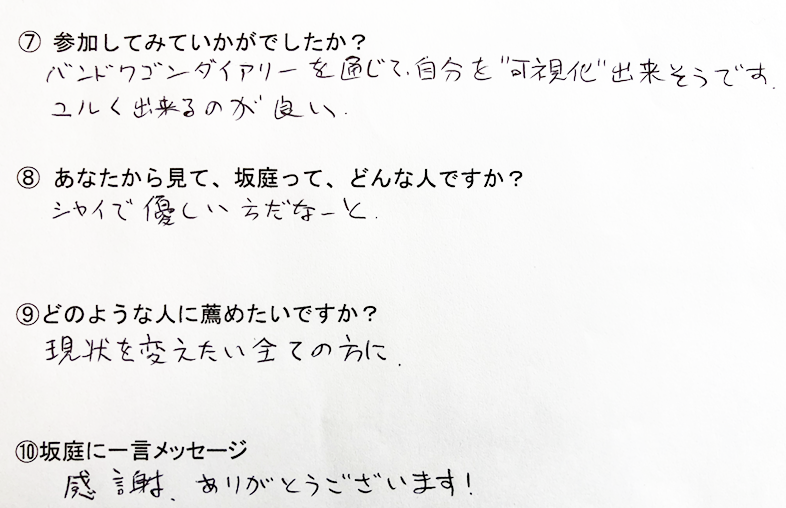 ⑦ 参加してみていかがでしたか？
バンドワゴンダイアリーを通じて、自分を"可視化"出来そうです.
ユルく出来るのが良い.
⑧ あなたから見て、坂庭って、どんな人ですか？
シャイで優しい方だなーと.
⑨どのような人に薦めたいですか？
現状を変えたい全ての方に.
⑩坂庭に一言メッセージ
感謝、ありがとうございます！